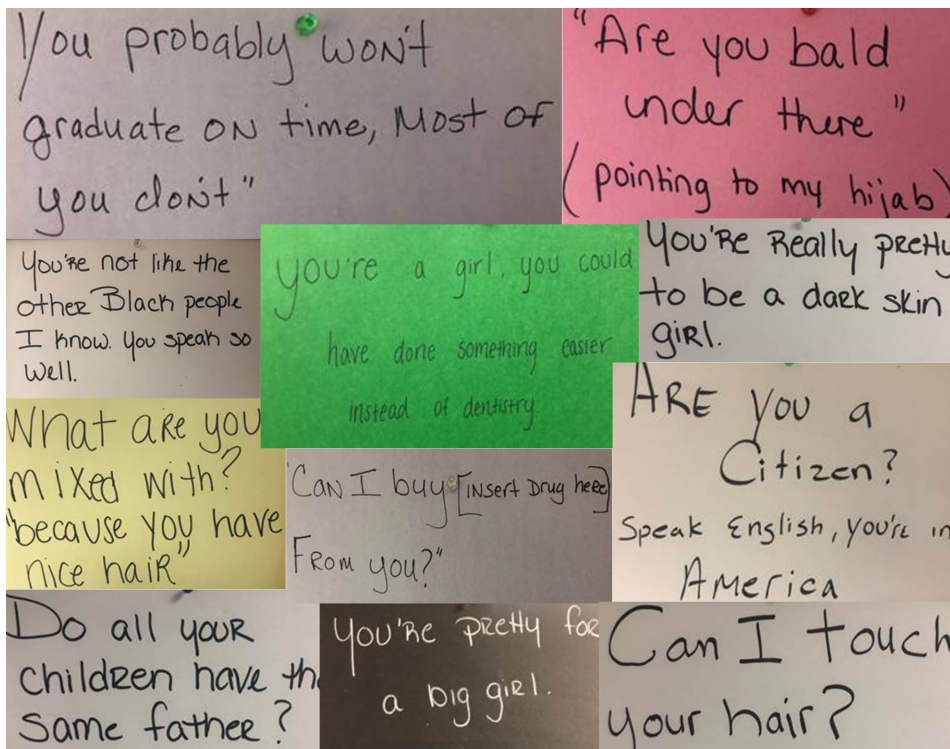 You probably won't
graduate on time, Most of
you don't"
"Are you bald
under there"
(pointing to my hijab)
You're not like the
other Black people
I know. You speak so
well.
you're a girl, you could
have done something easier
instead of dentistry.
You're Really pretty
to be a dark skin
girl.
What are you
mixed with?
"because you have
nice hair"
"Can I buy [insert Drug here]
From you?"
ARE you a
Citizen?
Speak English, you're in
America
Do all your
children have the
same father?
You're pretty for
a big girl.
Can I touch
your hair?